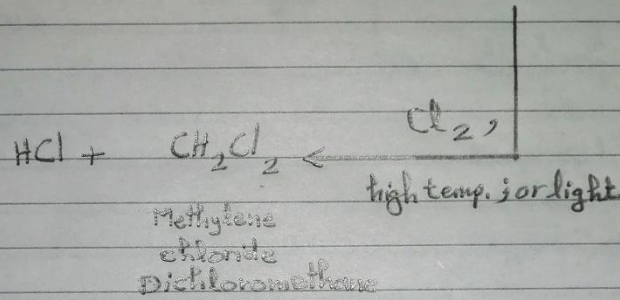 Cl₂,
HCl + CH₂Cl₂ ←
high temp. ; or light
Methylene
chloride
Dichloromethane